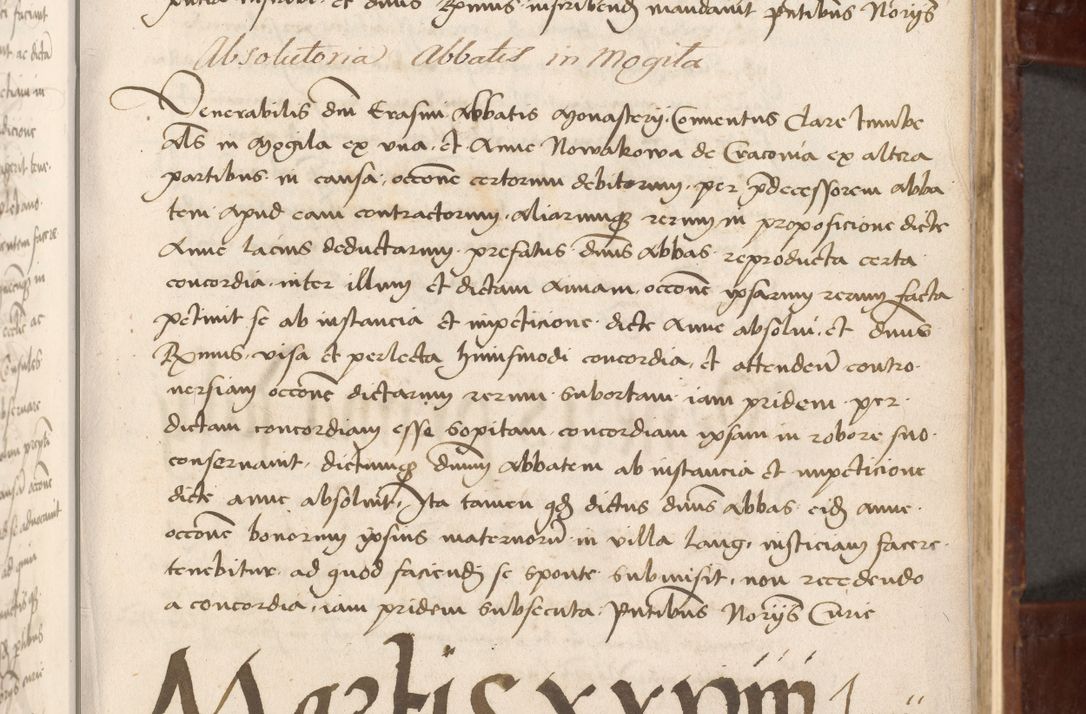 inscribi et dnus Rmus inscribendi mandavit pntibus Noriis
Absolutoria Abbatis in Mogila
Venerabilis dni Erasmi Abbatis Monasterii Conventus Clare tumbe
als in Mogila ex vna, et Anne Nowakowa de Craconia ex altera
partibus in causa, occone certorum debitorum, per pdecessorem abba
tem apud eam contractorum, aliarumq rerum in proposicione dicte
Anne lacius deductarum, prefatus dnus Abbas reproducta certa
concordia, inter illum et dictam Annam, occone ipsarum rerum facta
petiuit se ab instancia et impeticione dicte Anne absolui, et dnus
Rmus, visa et perlecta huiusmodi concordia, et attenden contro
uersiam occone dictarum rerum subortam, iam pridem per
dictam concordiam esse sopitam, concordiam ipsam in robore suo
conseruauit, dictumq dnum Abbatem ab instancia et impeticione
dicte anne absoluit, Ita tamen qd dictus dnus Abbas eid Anne
occone bonorum ipsius maternoru in villa Lang, iusticiam facere
tenebitur, ad quod faciend se sponte submisit, non recedendo
a concordia, iam pridem subsecuta, Pntibus Noriis Curie
Martis xxviii